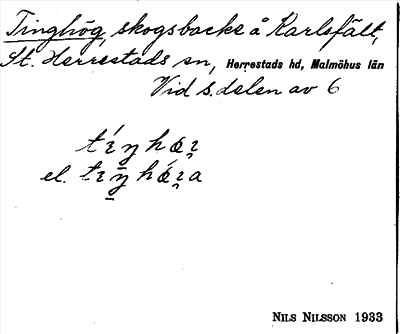 Tinghög, skogsbacke å Karlsfält,
St. Herrestads sn, Herrestads hd, Malmöhus län
Vid s. delen av 6
tíŋhœı̯
el. tıŋhœ́ı̯a
NILS NILSSON 1933